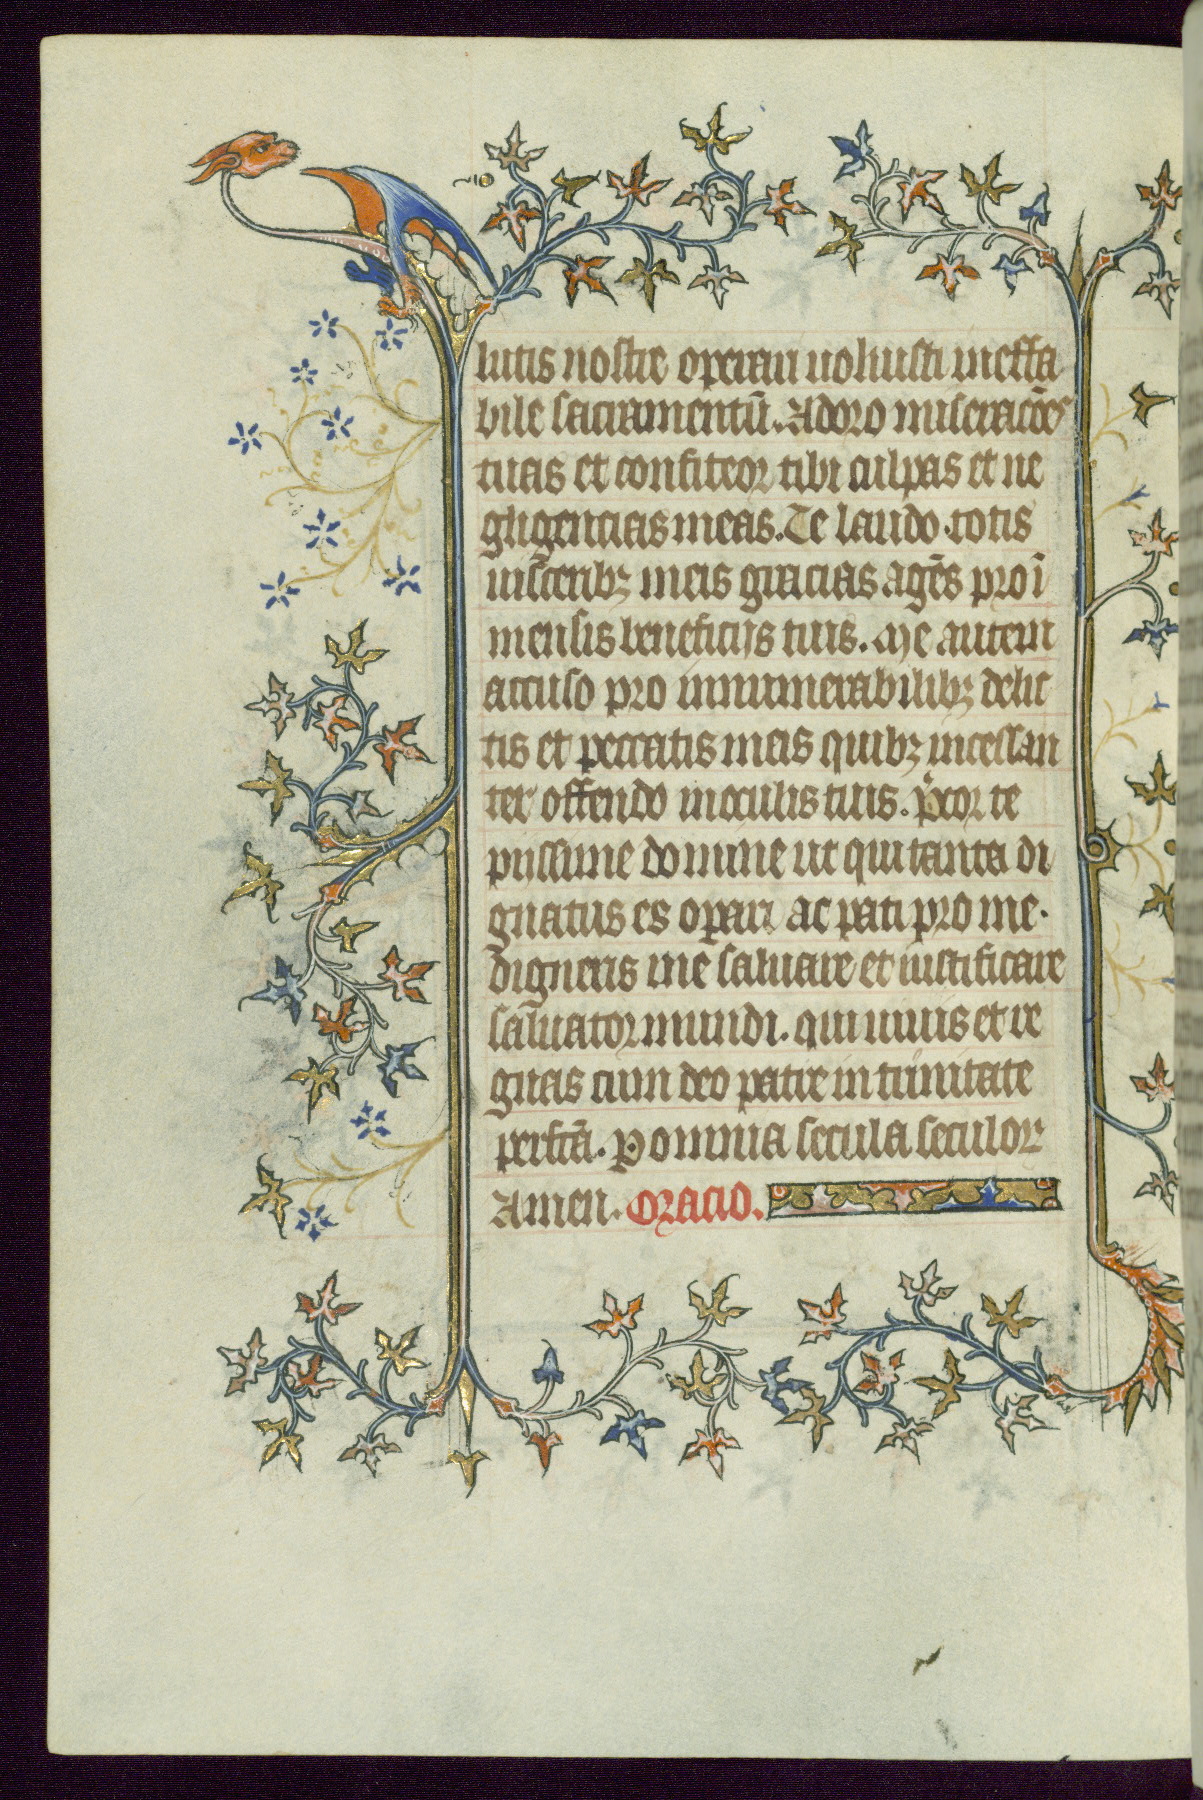 lutis nostre operari uoluisti ineffa
bile sacramentū. Adoro miseracōēs
tuas et confiteor tibi culpas et ne
gligencias meas. Te laudo totis
uisceribꝫ meis gracias agēs pro ī
mensis beneficijs tuis. Me autem
accuso pro innumerabilibꝫ delic
tis et peccatis meis quibꝫ incessan
ter offendo in oculis tuis. p̄cor te
pijssime domine ut qui tanta di
gnatus es oꝑari ac pati pro me.
digneris me saluare et iustificare
saluator mundi. qui uiuis et re
gnas cum deo patre in trinitate
perfctā. ꝑ omnia secula seculor
Amen. Oracio.